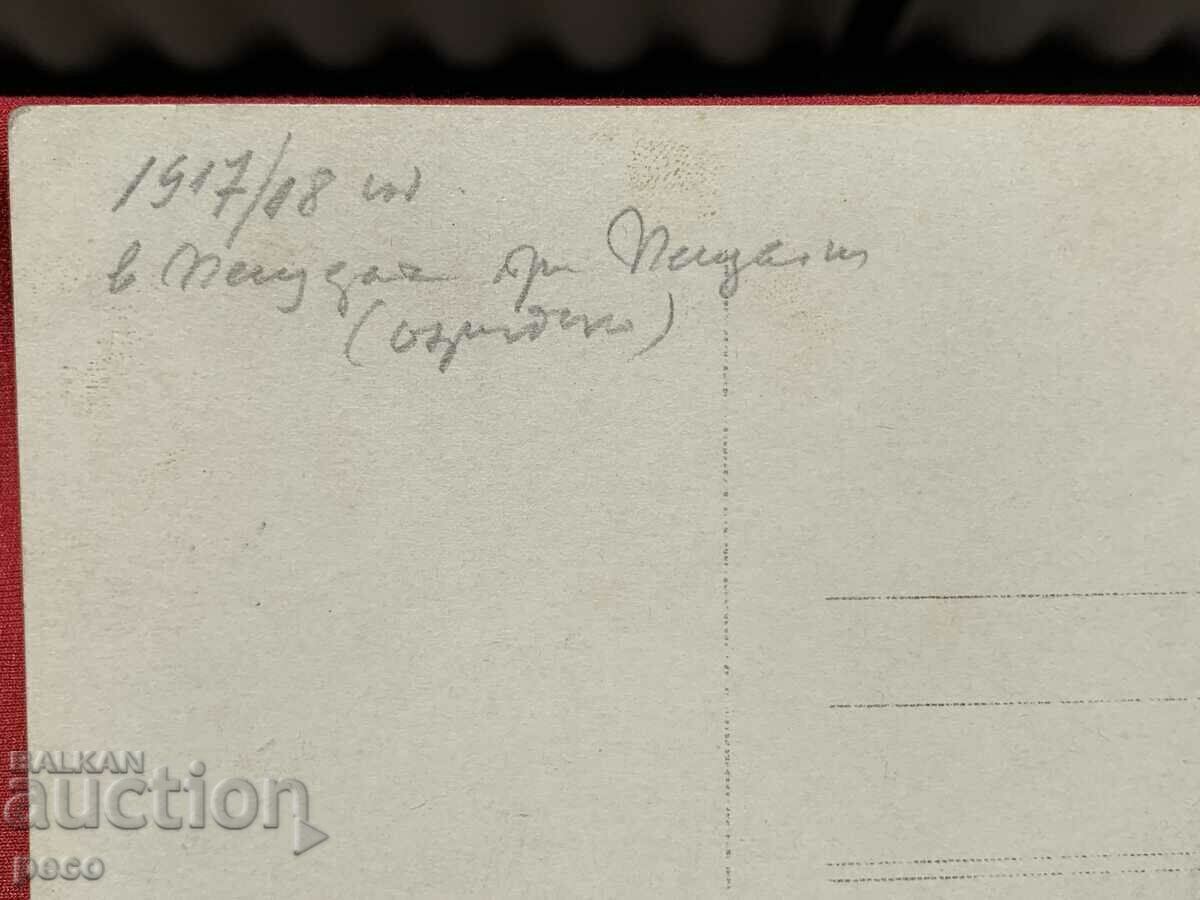 1917/18 год
в Пещера при Пещани
(охридско)
BALKAN
auction
peco